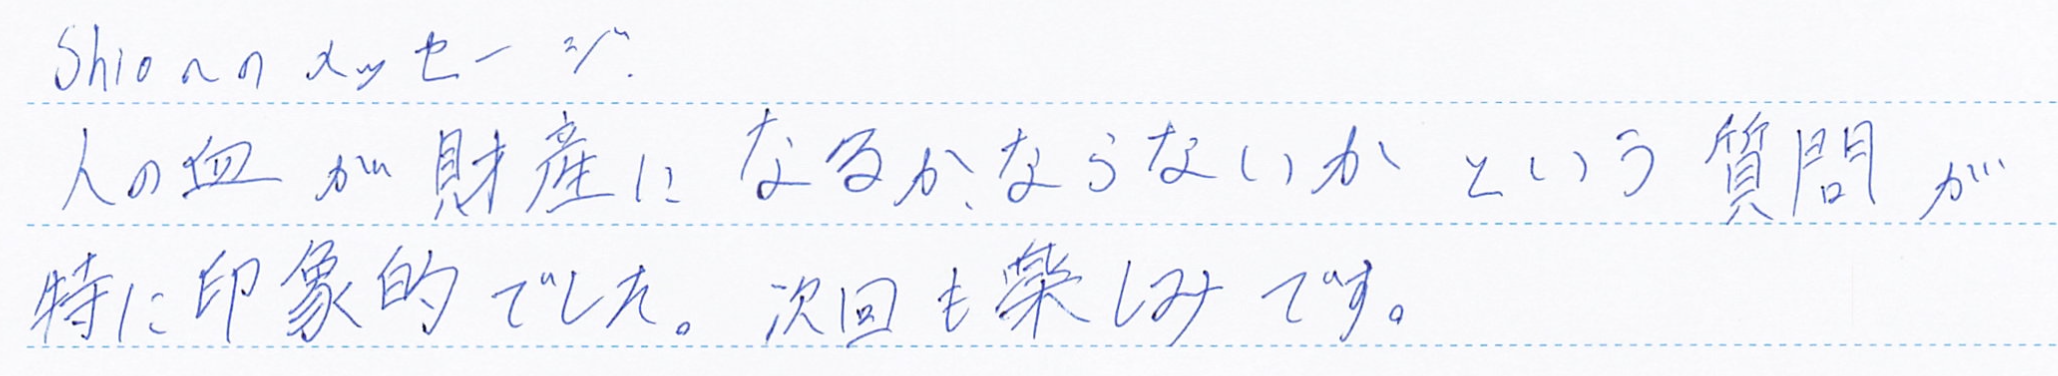 Shioへのメッセージ.
人の血が財産になるか、ならないかという質問が
特に印象的でした。次回も楽しみです。